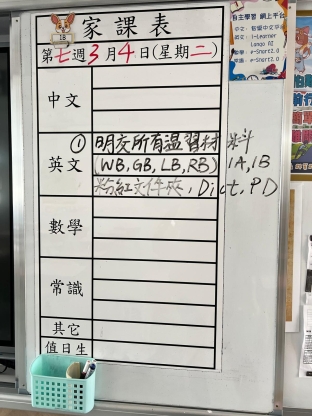 1B
家課表
第七週3月4日(星期二)
自主學習 網上平台
中文
英文: i-Learner
Lango AI
數學: e-Smart2.0
常識: e-Smart2.0
中文
英文
① 明交所有溫習材料
(WB, GB, LB, RB) 1A, 1B
粉紅文件夾, Dict, PD
數學
常識
其它
值日生